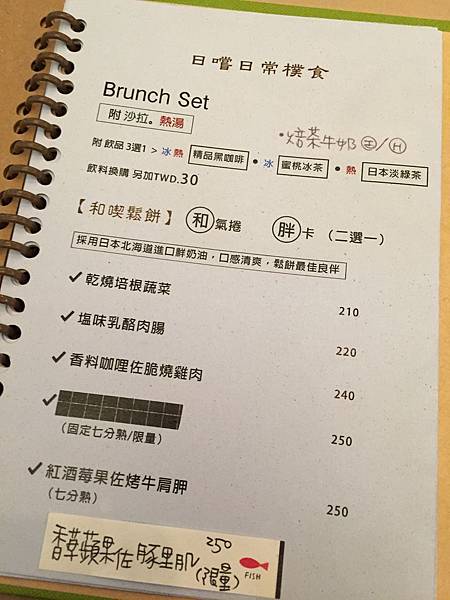 日嚐日常樸食
Brunch Set
附 沙拉。熱湯
•焙茶牛奶 Ⓘ/Ⓗ
附 飲品 3選1 > 冰 熱 精品黑咖啡 • 冰 蜜桃冰茶 • 熱 日本淡綠茶
飲料換購 另加TWD.30
【和喫鬆餅】 和氣捲 胖卡 (二選一)
採用日本北海道進口鮮奶油，口感清爽，鬆餅最佳良伴
✓乾燒培根蔬菜 210
✓塩味乳酪肉腸 220
✓香料咖哩佐脆燒雞肉 240
✓ 250
(固定七分熟/限量)
✓紅酒莓果佐烤牛肩胛 250
(七分熟)
香草蘋果佐豚里肌 250
(限量) FISH